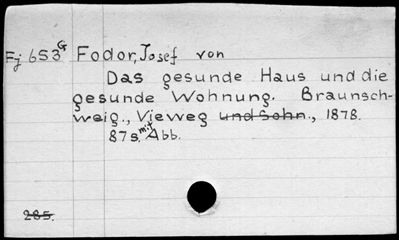 Fj 653 G Fodor, Josef von
Das gesunde Haus und die
gesunde Wohnung. Braunsch-
weig., Vieweg und Sohn., 1878.
87 s. mit Abb.
285.